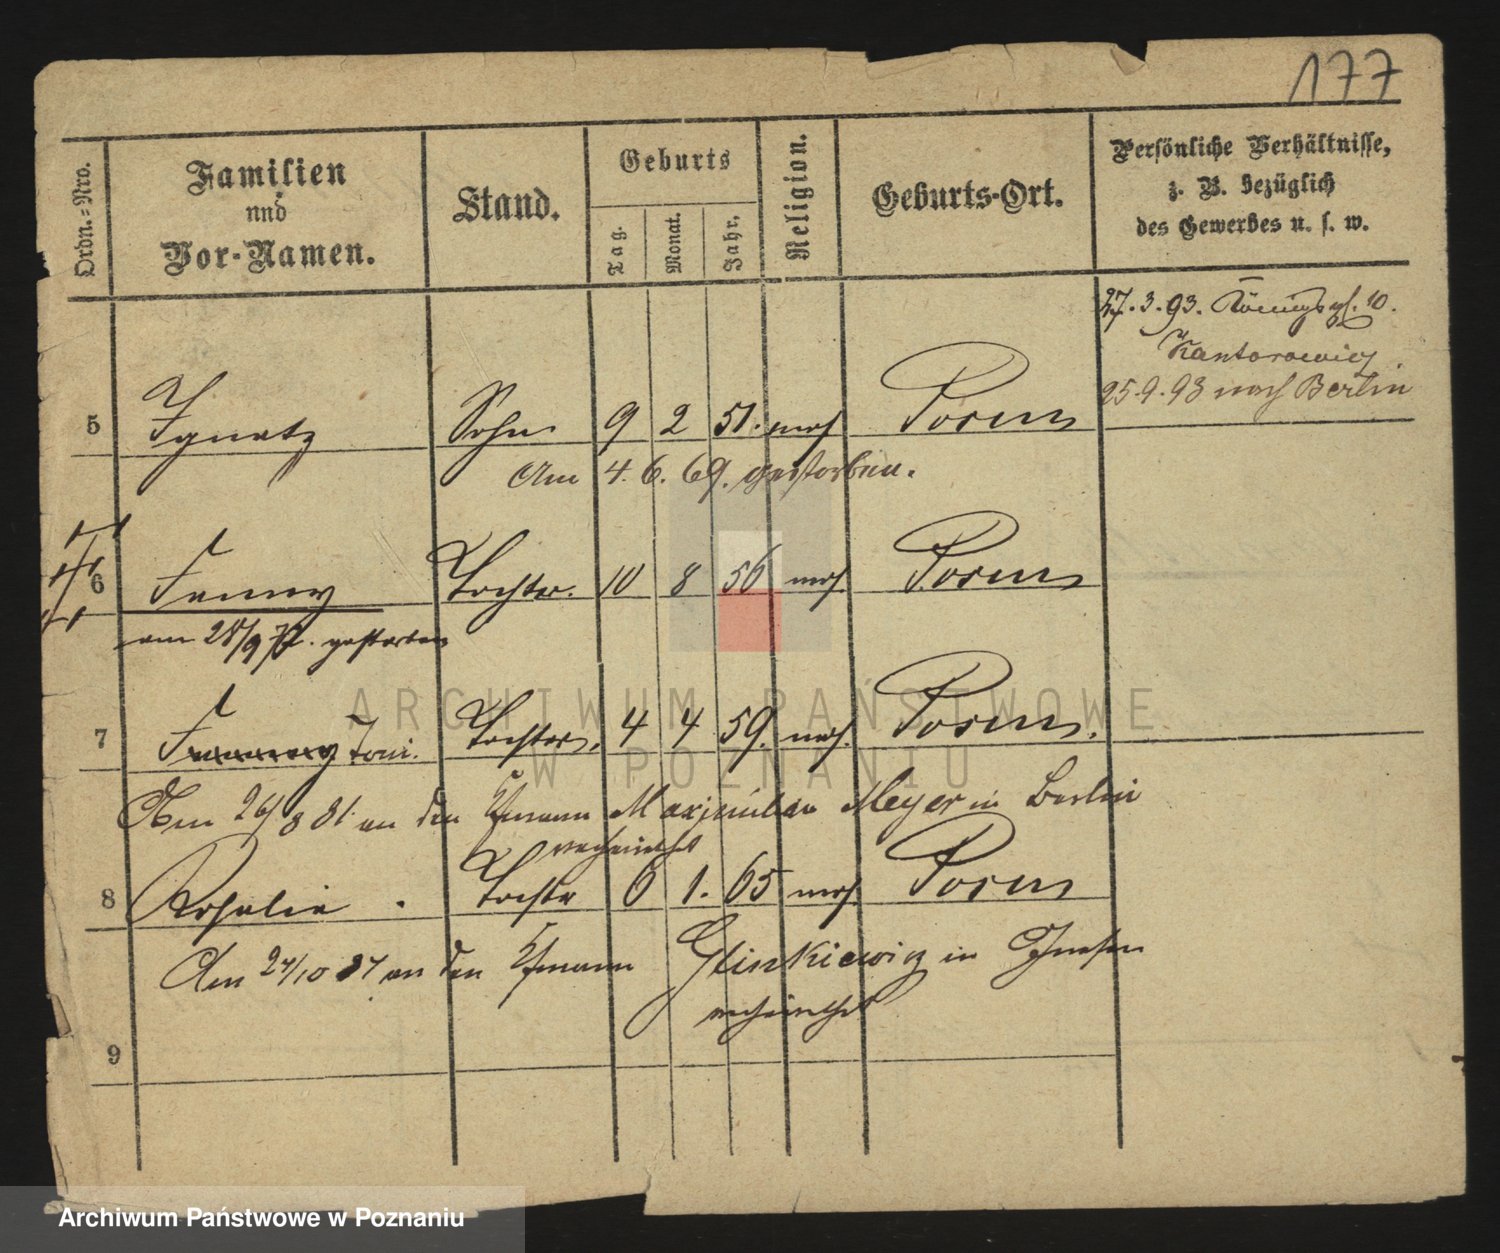 177
Ordn.=Nro.
Familien
und
Vor-Namen.
Stand.
Geburts
Tag.
Monat.
Jahr.
Religion.
Geburts-Ort.
Persönliche Verhältnisse,
z. B. bezüglich
des Gewerbes u. s. w.
27.3.93. Königspl. 10.
Kantorowicz
25.9.93 nach Berlin
5 Ignatz Sohn 9 2 51. mos Posen
Am 4. 6. 69. gestorben.
6 Fanny Tochter. 10 8 56 mos Posen
am 28/9 77. gestorben
7 Fanny Toni. Tochter. 4 4 59. mos. Posen.
Am 26/8 81 an den Kfmann Maximilian Meyer in Berlin
verheirathet
8 Rosalie. Tochter 6 1. 65 mos Posen
Am 24/10 87 an den Kfmann Glinkiewicz in Gnesen
verheirathet
9
ARCHIWUM PAŃSTWOWE
W POZNANIU
Archiwum Państwowe w Poznaniu